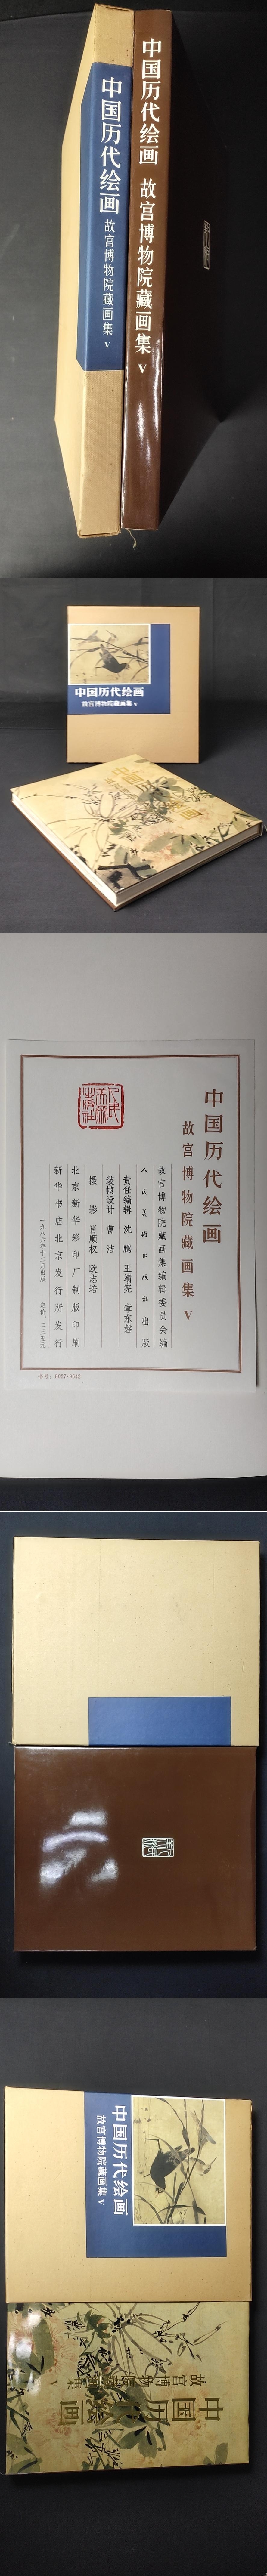 中国历代绘画
故宫博物院藏画集 V
中国历代绘画 故宫博物院藏画集 V
中国历代绘画
故宫博物院藏画集 V
中国历代绘画
故宫博物院藏画集 V
故宫博物院藏画集编辑委员会编
人民美术出版社 出版
责任编辑 沈鹏 王靖宪 章东磐
装帧设计 曹洁
摄影 肖顺权 欧志培
北京新华彩印厂制版印刷
新华书店北京发行所发行
一九八六年十二月出版 定价:二三五元
书号:8027·9842
人民美术出版社
中国历代绘画
故宫博物院藏画集 V
中国历代绘画
故宫博物院藏画集